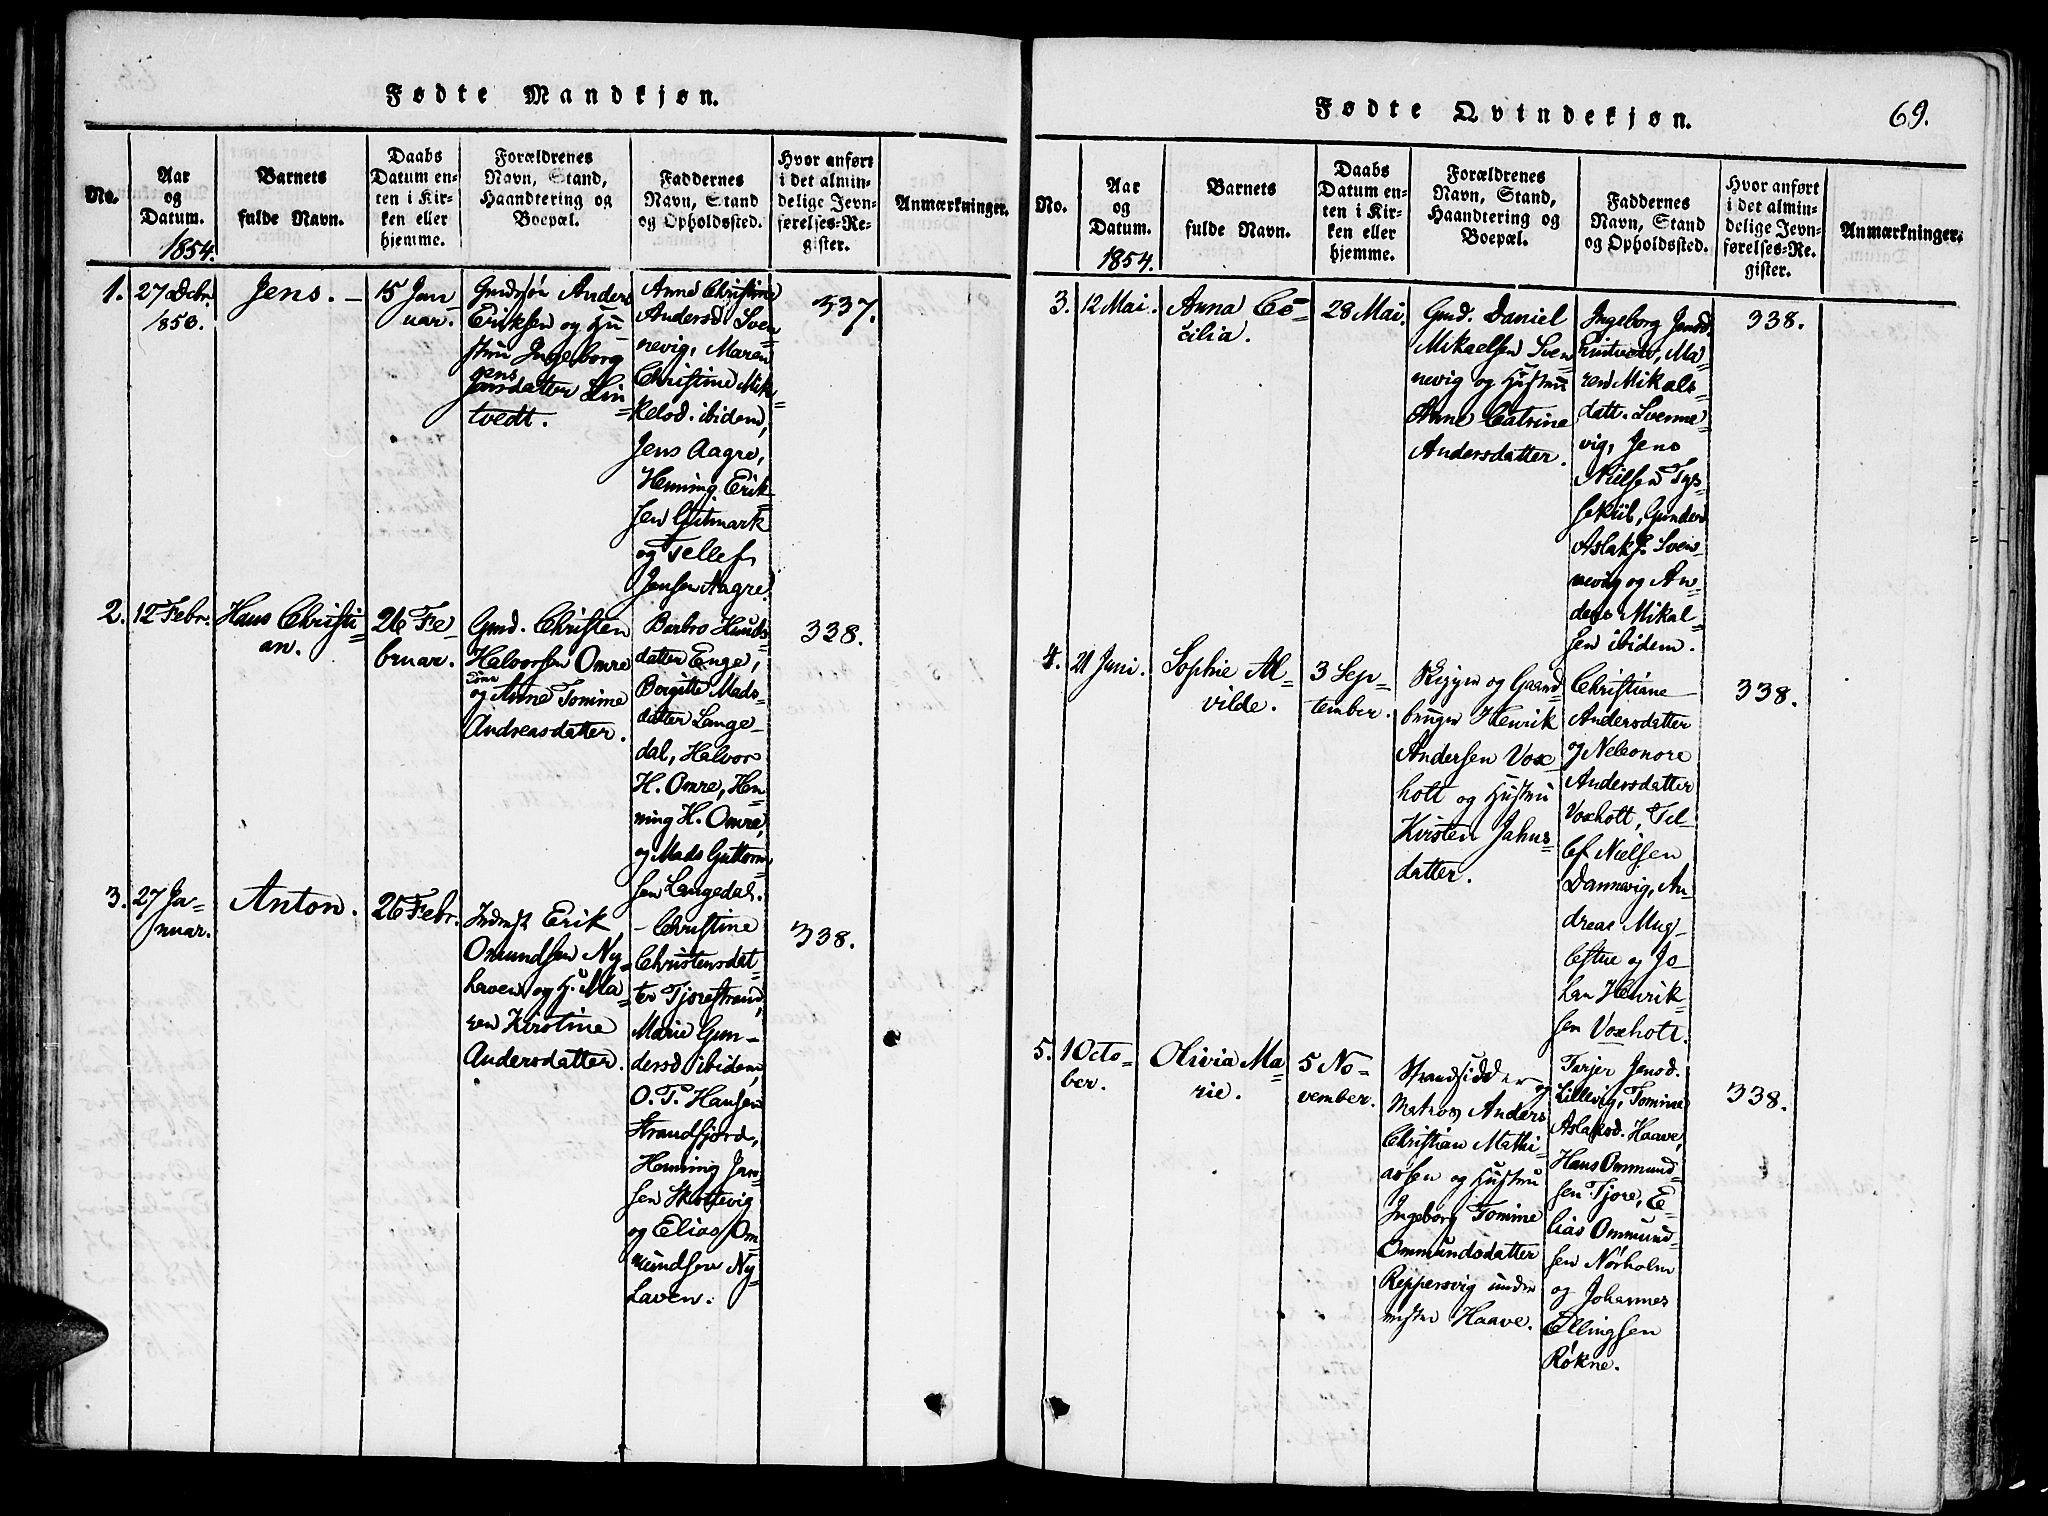 Fødte Mandkjøn.
No.
Aar
og
Datum.
1854.
Barnets
fulde Navn.
Daabs
Datum en-
ten i Kir-
ken eller
hjemme.
Forældrenes
Navn, Stand,
Haandtering og
Boepæl.
Faddernes
Navn, Stand
og Opholdssted.
Hvor anført
i det almin-
delige Jevn-
førelses-Re-
gister.
Anmærkninger.
1.
27 Decbr.
1853.
Jens. –
15 Jan
uar.
Anders
Eriksen og Hu-
stru Ingeborg
Jens
datter Lin
tvedt.
Anne Christine
Andersd. Sven
nevig, Maren
Christine Mik-
kelsd. ibidem,
Jens Aagre,
Henning Erik-
sen Gitmark
og Tellef
Jensen Aagre.
337.
2.
12 Febr.
Hans Christi
an.
26 Fe-
bruar.
Gmd. Christen
Halvorsen Omre
og Anne Tomine
Andreasdatter.
Barbro Knuds-
datter Enge,
Birgitte Mads-
datter Lange-
dal, Halvor
H. Omre, Hen-
ning H. Omre,
og Mads Guttorm
sen Langedal.
338.
3.
27 Ja-
nuar.
Anton.
26 Febr.
Inderst Erik
Omundsen Ny-
haven og H. Ma-
ren Kirstine
Andersdatter.
– Christine
Christensdat-
ter Tjorestrand,
Marie Gun-
dersd ibidem,
O. T. Hansen
Strandfjord,
Henning Jen-
sen Skottevig
og Elias Om-
mundsen Ny-
haven.
338.
Fødte Qvindekjøn.
69.
No.
Aar
og
Datum.
1854.
Barnets
fulde Navn.
Daabs
Datum en-
ten i Kir-
ken eller
hjemme.
Forældrenes
Navn, Stand,
Haandtering og
Boepæl.
Faddernes
Navn, Stand
og Opholdssted.
Hvor anført
i det almin-
delige Jevn-
førelses-Re-
gister.
Anmærkninger.
3.
12 Mai.
Anna Ce-
cilia.
28 Mai.
Gmd. Daniel
Mikaelsen Sven-
nevig og Hustru
Anne Catrine
Andersdatter.
Ingeborg Jensd.
Lintvedt, Ma-
ren Mikals-
datt. Svenne-
vig, Jens
Nielsen Tys-
sekiil, Gunders
Aslaks. Sven-
nevig og An-
ders Mikal-
sen ibidem.
338.
4.
21 Juni.
Sophie Al-
vilde.
3 Sep-
tember.
Skipper og Gaard-
bruger Henrik
Andersen Vox-
holt og Hustru
Kirsten Jahns-
datter.
Christiane
Andersdatter
Neleonore
Andersdatter
Voxholt, Tel-
lef Nielsen
Dannevig, An-
dreas Mug-
lestue og Jo-
han Henrik-
sen Voxholt.
338.
5.
1 Octo-
ber.
Olivia Ma-
rie.
5 No-
vember.
Strandsidder og
Matros Anders
Christian Mathi-
assen og Hustru
Ingeborg Tomine
Ommundsdatter
Reppersvig under
mester Haave.
Tarjer Jensd.
Lillevig, Tomine
Aslaksd. Haave,
Hans Ommund-
sen Tjore, E-
lias Ommund-
sen Nørholm
og Johannes
Ellingsen
Røkne.
338.